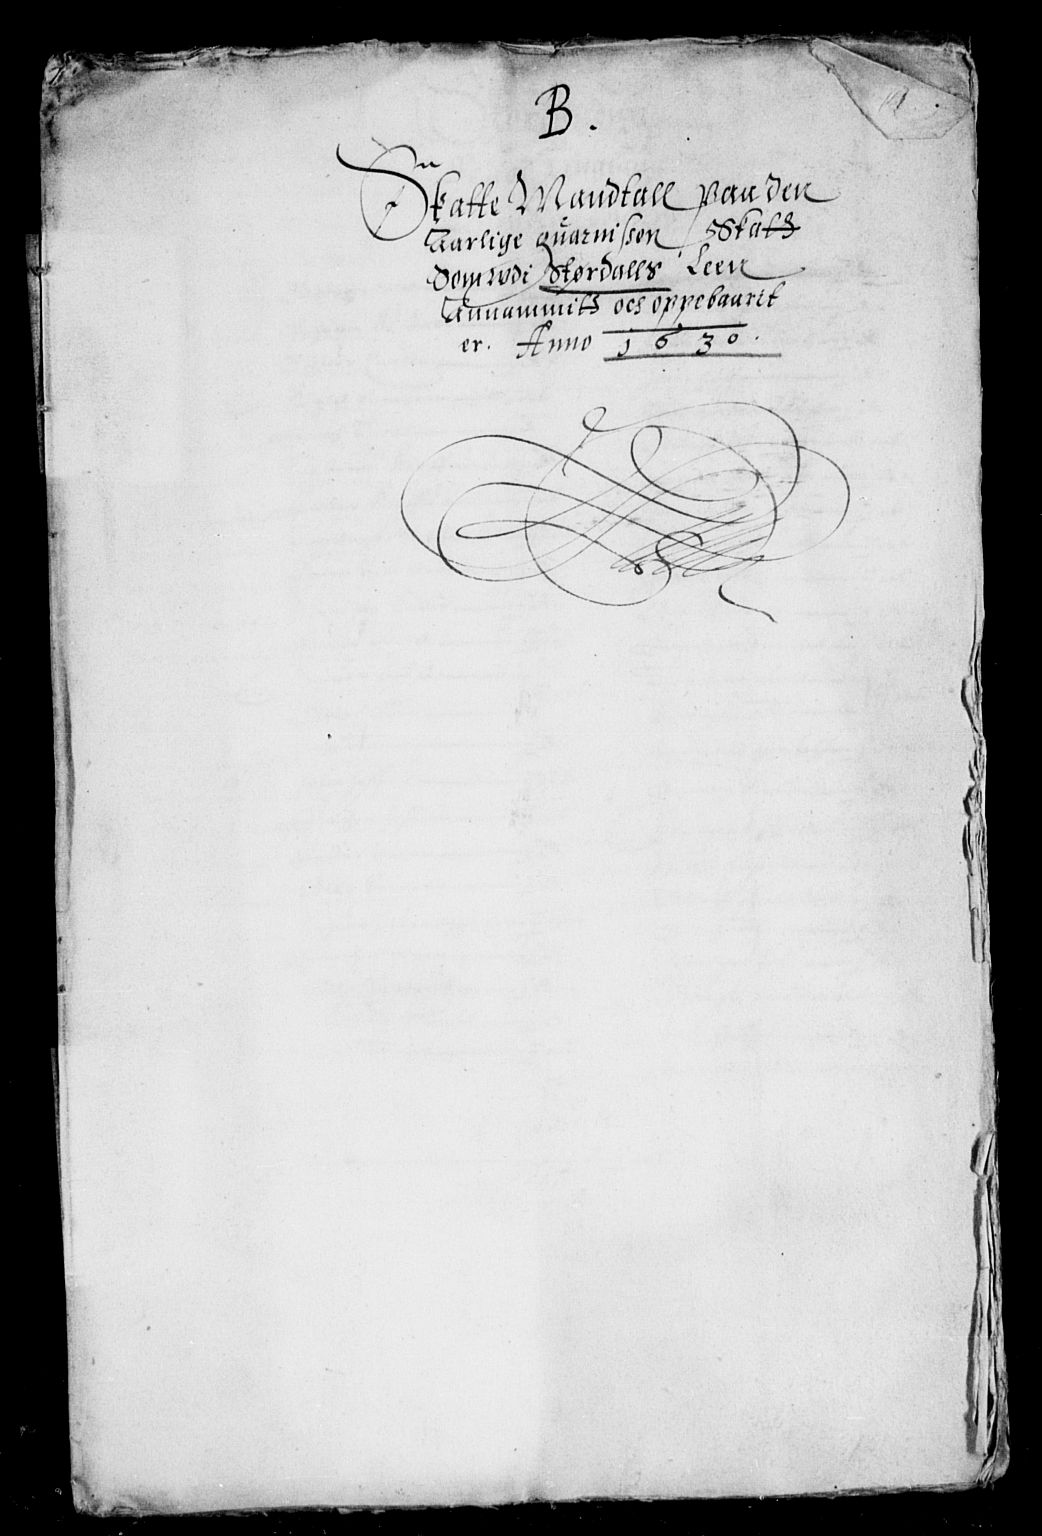 B.
Skatte Mandtall paa den
Aarlige quarnisson Skatt
Som udi Størdalls Leen
Annammitt och oppebaarit
er. Anno 1630.